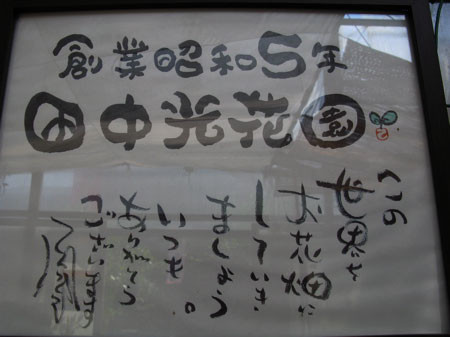 創業昭和5年
田中光花園
この
世界を
お花畑に
していき
ましょう。
いつも
ありがとう
ございます